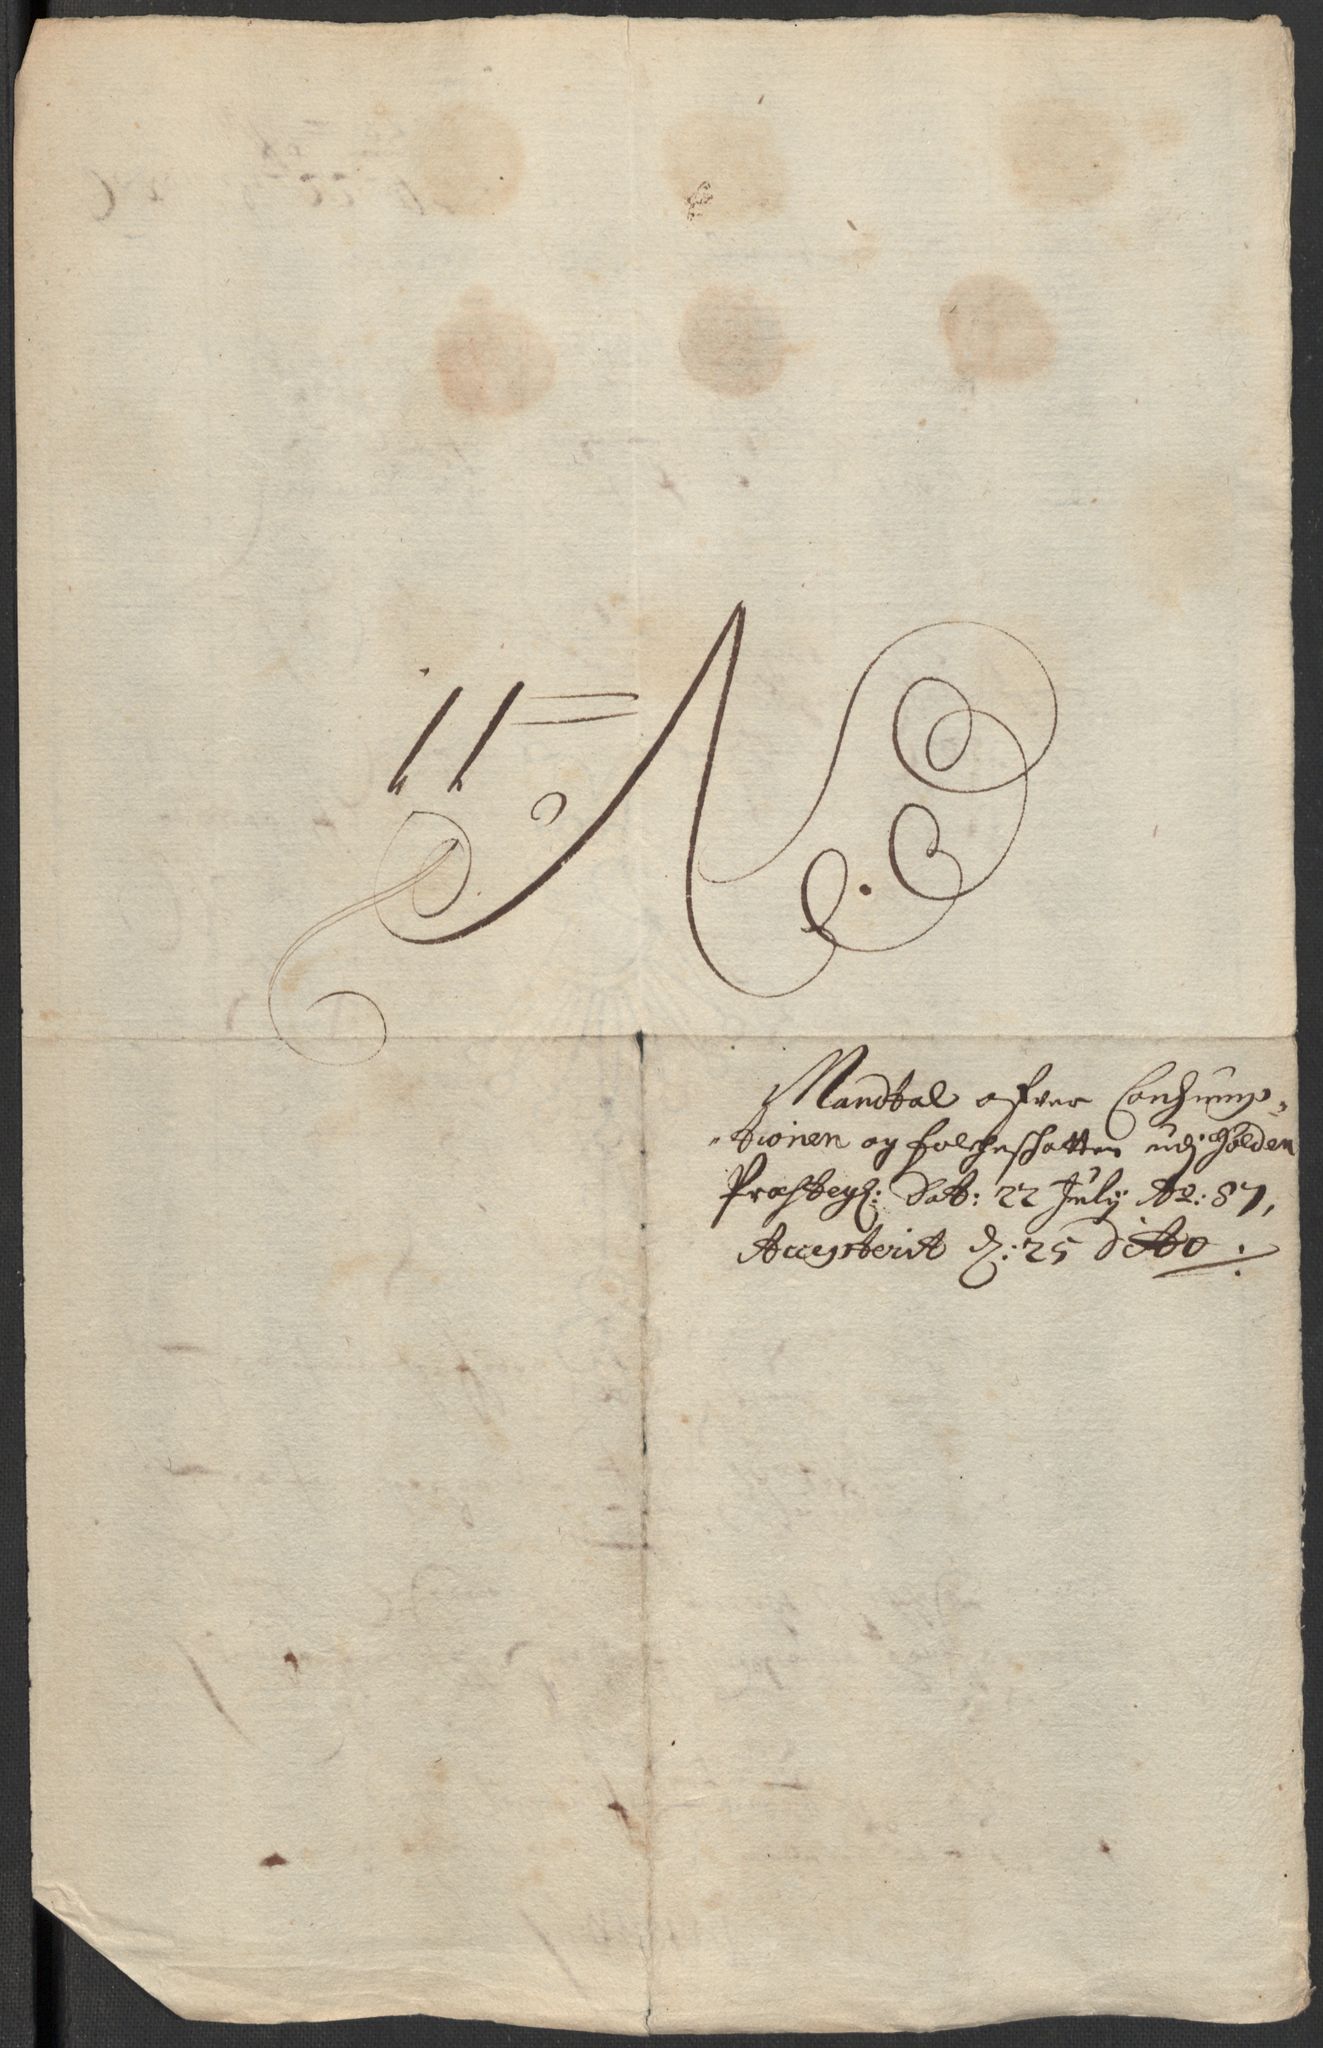 11 N
Mandtal ofver Consump-
tionen og folcheschatten udj Holden
Præstegl: Dat: 22 July Ao: 87,
Accepterit d: 25 dito.